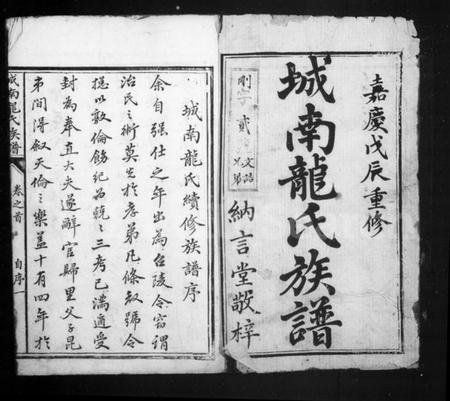 嘉慶戊辰重修
城南龍氏族譜
納言堂敬梓
剛字
貳
文語
兄弟
城南龍氏續修族譜序
余自強仕之年出為台陵令竊謂
治民之術莫先於孝弟凡條教號令
摠以敦倫飭紀為兢兢三考已滿適受
封為奉直大夫遂辭官歸里父子昆
弟間得敘天倫之樂蓋十有四年於
城南龍氏族譜
卷之首
自序一